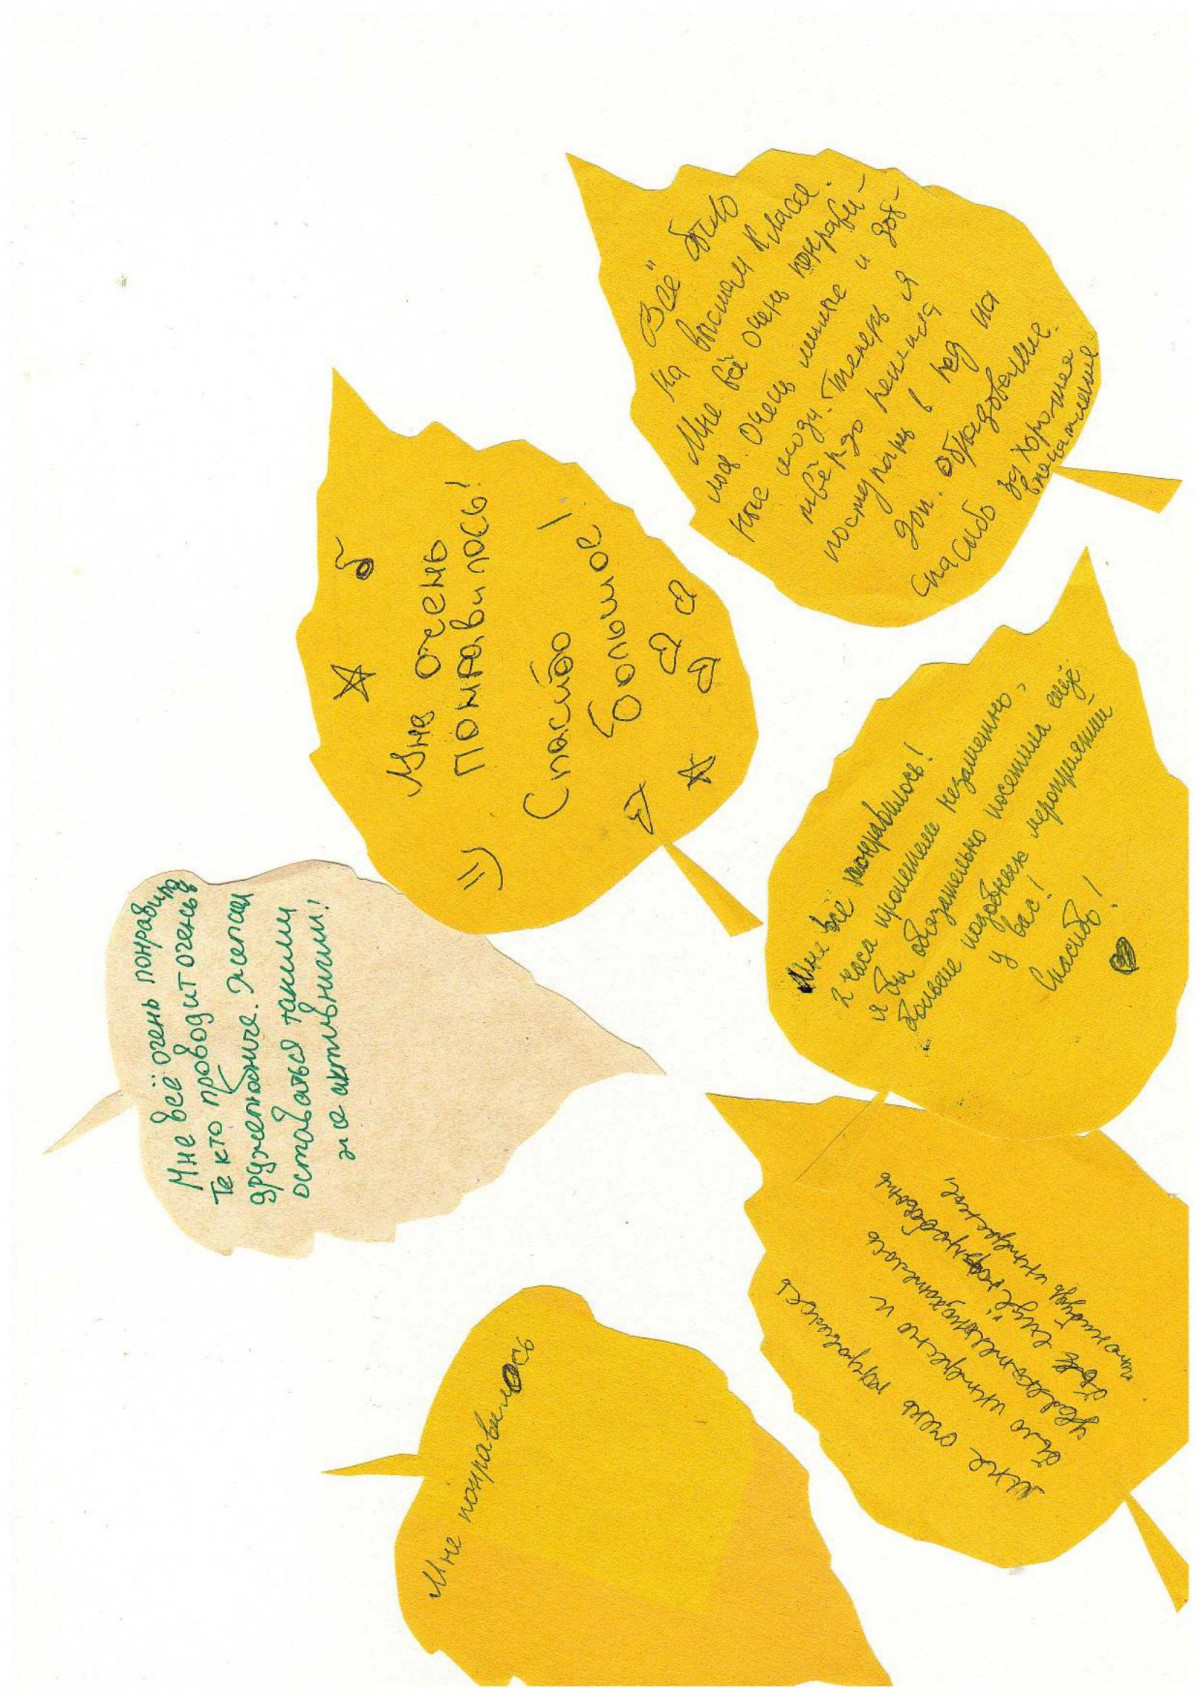 Всё было
на высшем классе.
Мне всё очень понрави-
лось. Очень милые и доб-
рые люди. Теперь я
твёрдо решила
поступать в пед на
доп. образование.
Спасибо за хорошее
впечатление.
Мне очень
понравилось!
Спасибо
большое!
=))
Мне всё понравилось!
2 часа пролетели незаметно,
я бы обязательно посетила ещё
больше подобных мероприятий
у вас!
Спасибо!
Мне всё очень понравило
Те кто проводит очень
дружелюбные. Желаю
оставаться такими
же активными!
мне очень понравилось
было интересно и
увлекательно
бы ещё попробовать
что нибудь интересное,
Мне понравилось